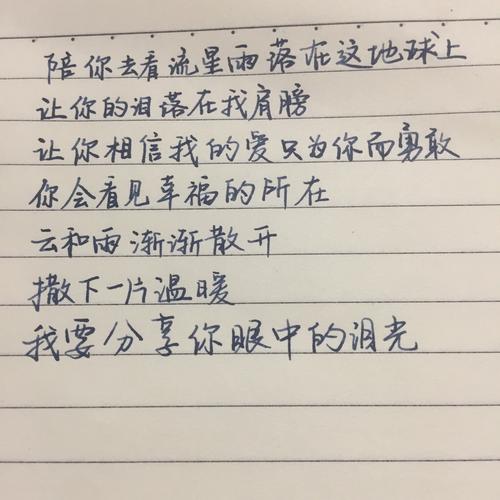 陪你去看流星雨落在这地球上
让你的泪落在我肩膀
让你相信我的爱只为你而勇敢
你会看见幸福的所在
云和雨渐渐散开
撒下一片温暖
我要分享你眼中的泪光